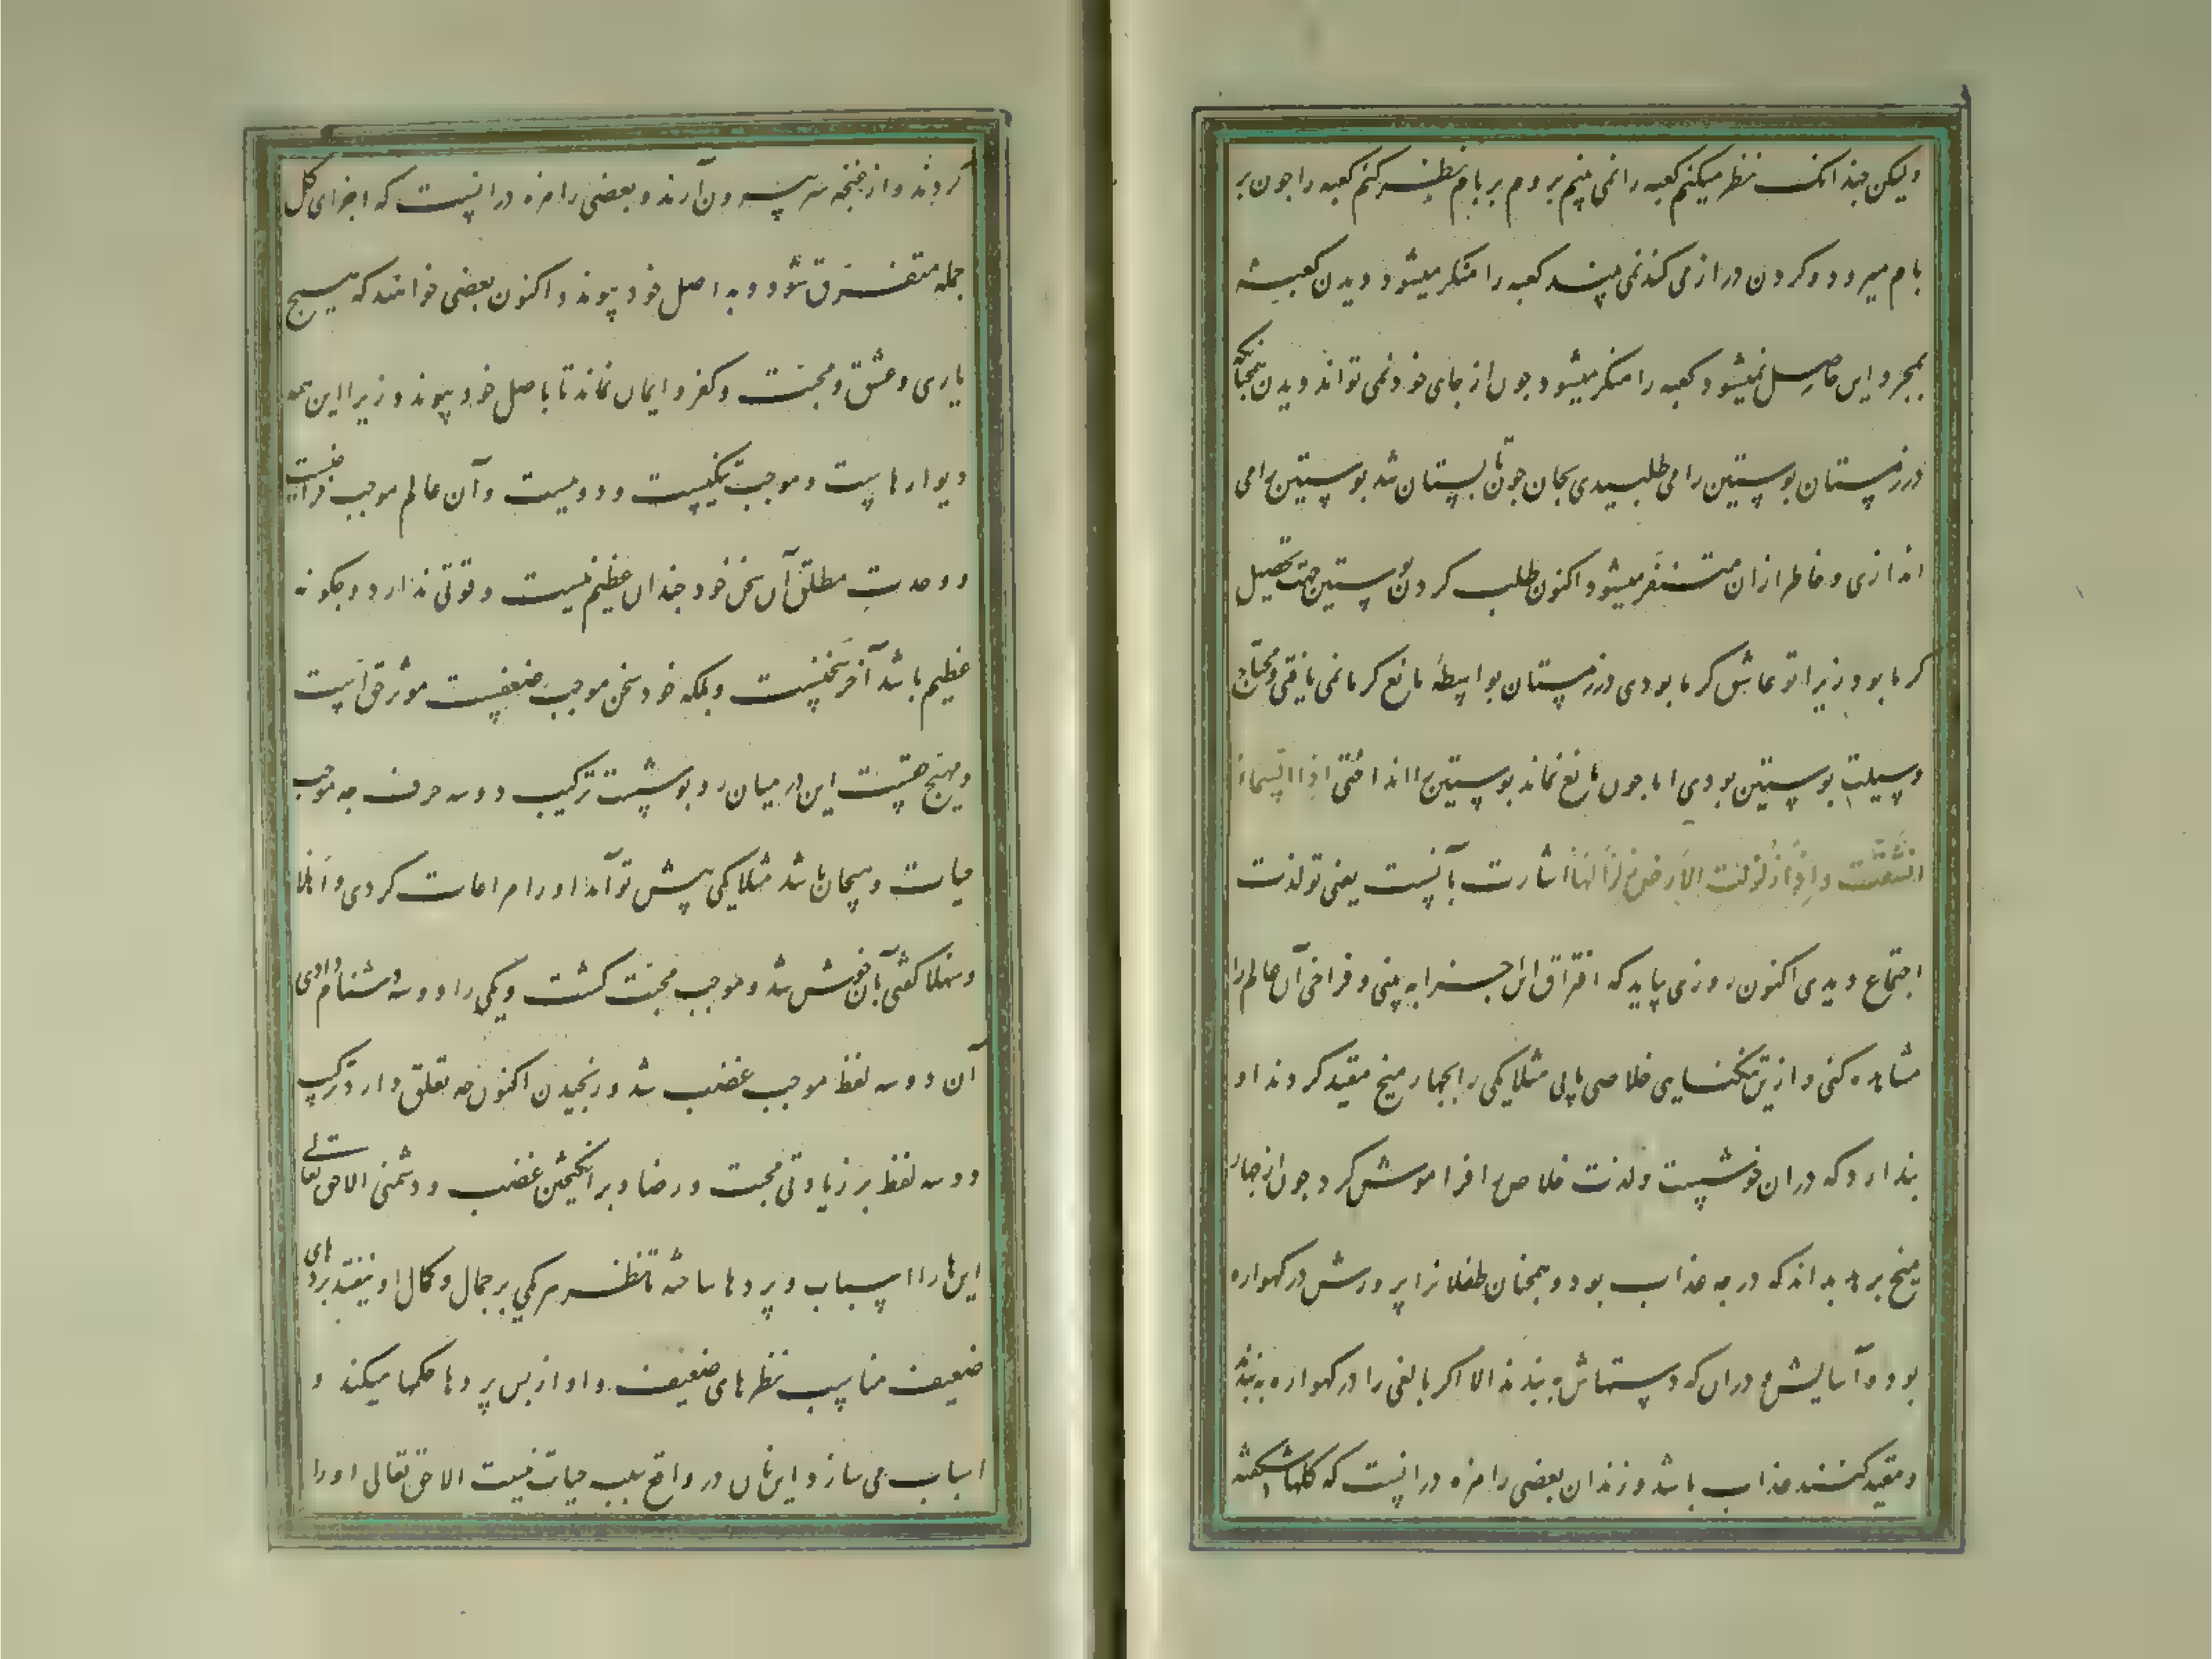 ولیکن چندانک نظر میکنم کعبه را نمی بینم بروم بر بام نظر کنم کعبه را چون بر
بام میرود و کردن دراز می کند نمی بیند کعبه را منکر میشود دیدن کعبه
بمجرد این حاصل نمیشود کعبه را منکر میشود چون از جای خود نمی تواند دیدن همچنانک
در زمستان پوستین را می طلبیدی بجان چون تابستان شد پوستین را می
اندازی و خاطر ازان متنفر میشود اکنون طلب کردن پوستین جهت تحصیل
کرما بود زیرا تو عاشق کرما بودی در زمستان بواسطهٔ مانع کرما نمی یافتی و محتاج
وسیلت پوستین بودی اما چون مانع نماند پوستین را انداختی اذا السماء
انشقت و اذا زلزلت الارض زلزالها اشارت بآنست یعنی تو لذت
اجتماع دیدی اکنون روزی بیاید که افتراق این اجزا به بینی و فراخی آن عالم را
مشاهده کنی و ازین تنکنای خلاصی یابی مثلا یکی را بچهار میخ مقید کردند او
پندارد که دران خوشست و لذت خلاص را فراموش کرد چون از چهار
میخ برهد بداند که در چه عذاب بود و همچنان طفلانرا پرورش در کهواره
بود و آسایش و دران که دستهاش به بندند الا اکر بالغی را در کهواره به بندند
و مقید کنند عذاب باشد و زندان بعضی را مزه در انست که کلها شکفته
کردند و از غنچه سر بیرون آرند و بعضی را مزه در انست که اجزای کل
جمله متفرق شود و به اصل خود پیوندد اکنون بعضی خواهند که هیچ
یاری و عشق و محبت و کفر و ایمان نماند تا باصل خود پیوندد زیرا این همه
دیوارهاست و موجب تنکیست و دویست و آن عالم موجب فراخیست
و وحدت مطلق آن سخن خود چندان عظیم نیست و قوتی ندارد و چکونه
عظیم باشد آخر سخنست و بلکه خود سخن موجب ضعفیست موثر حق است
و مهیج حقست این در میان روپوشست ترکیب دو سه حرف چه موجب
حیات و هیجان باشد مثلا یکی پیش تو آمد او را مراعات کردی و اهلا
و سهلا کفتی بآن خوش شد و موجب محبت کشت و یکی را دو سه دشنام دادی
آن دو سه لفظ موجب غضب شد و رنجیدن اکنون چه تعلق دارد ترکیب
دو سه لفظ بر زیادتی محبت و رضا و بر انکیختن غضب و دشمنی الا حق تعالی
این ها را اسباب و پردها ساخته تا نظر هر یکی بر جمال و کمال او نیفتد پردهای
ضعیف مناسب نظرهای ضعیف و او از پس پردها حکمها میکند و
اسباب می سازد این نان در واقع سبب حیات نیست الا حق تعالی او را